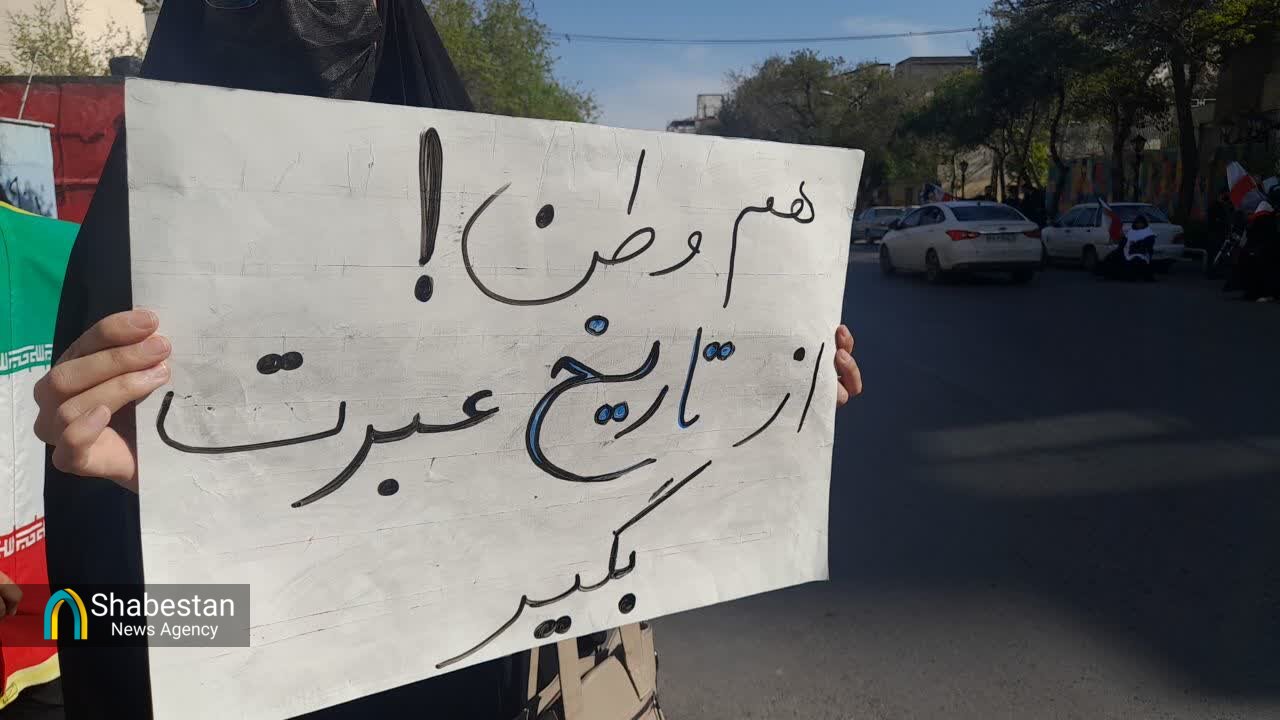 هم وطن!
از تاریخ عبرت
بگیر
Shabestan
News Agency